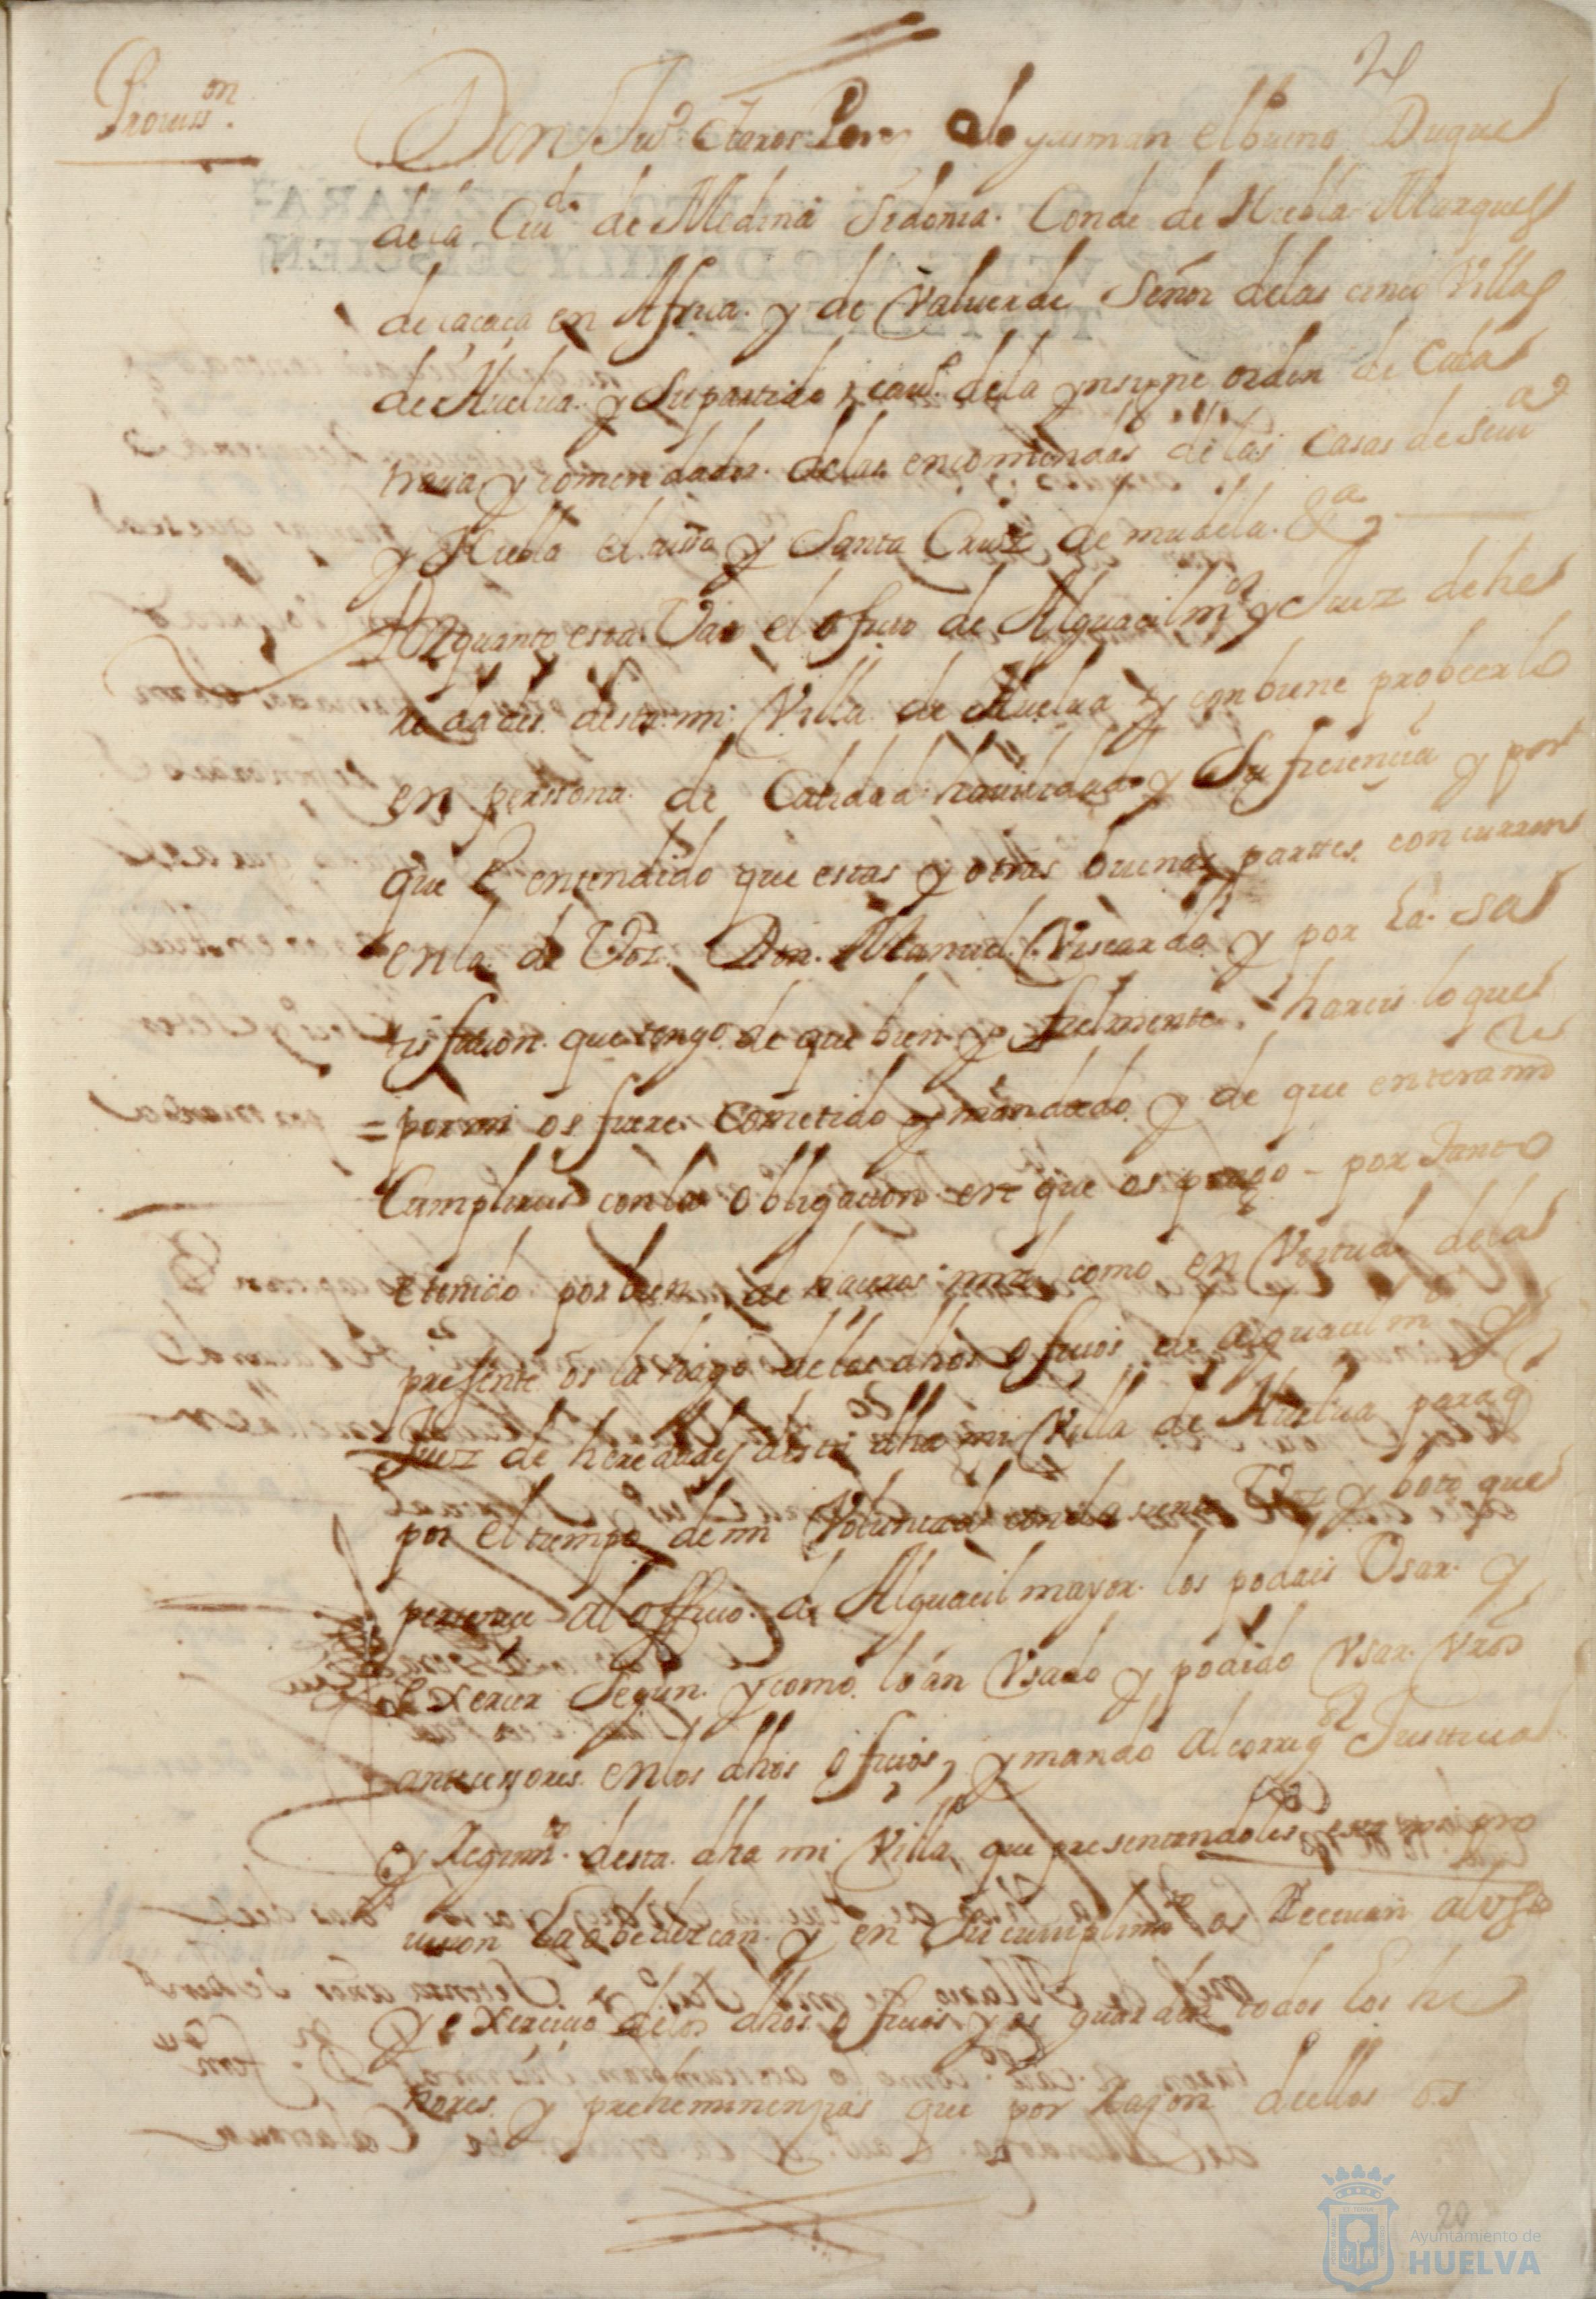 Provisson.
21
Don Juº Claros Perez de gusman el bueno Duque
de la Ciud. de Medina Sidonia. Conde de Niebla Marques
de caçaça en Africa. y de Valuerde Señor de las cinco Villas
de Huelua. y su partido, cauº. de la ynsigne orden de Cala
traua y comendador. de las encomiendas de las Casas de Seuª
y Niebla el viso y Santa Cruz de mudela. &ª
Por quanto esta Vaco el ofiçio de Alguacil mor y Juez de he
redades desta mi Villa de Huelua y conbiene probeerlo
en persona. de Calidad hauilidad y Suficiencia y por
que é entendido que estas y otras buenas partes, concurren
en la de Vos. Don. Manuel Viscardo y por la Sa
tisfacion que tengo de que bien y fielmente hareis lo que
= por mi os fuere. Cometido y mandado y de que enteramte
Cumplireis con la obligacion en que os pongo - por Tanto
e tenido por bien de haceros mrd como en Vertud de la
presente os la hago de los dhos ofiçios de alguacil mor y
Juez de heredades desta dha mi Villa de Huelua para q
por el tiempo de mi Voluntad con el asiento Voz y boto que
pertenece al offiçio de Alguacil mayor. los podais Usar. y
Exercer Segun. y como. lo án Usado y podido Usar. Vros
antecesores. en los dhos ofiçios, y mando al corregor Justicia
y Regimto. desta. dha mi Villa, que presentandoles esta mi pro
uision la obedezcan. y en Su cumplimto os Reciuan al uso
y exercicio de los dhos ofiçios y os guarden todos los ho
nores. y preheminençias que por Raçon de ellos os
20
Ayuntamiento de
HUELVA